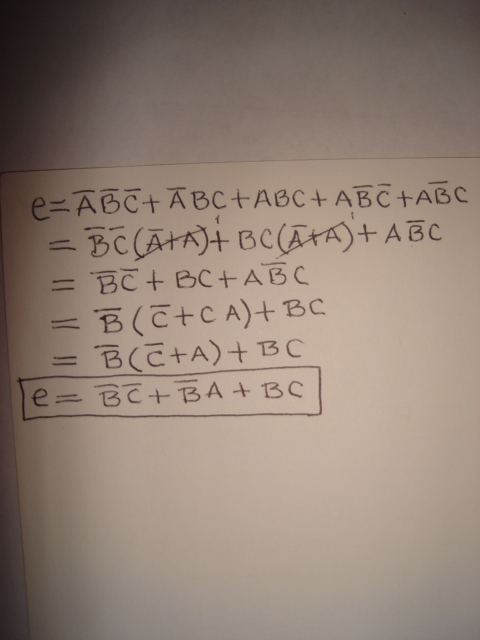 e = A̅B̅C̅ + A̅BC + ABC + AB̅C̅ + AB̅C
= B̅C̅(A̅+A) + BC(A̅+A) + AB̅C
= B̅C̅ + BC + AB̅C
= B̅(C̅+CA) + BC
= B̅(C̅+A) + BC
e = B̅C̅ + B̅A + BC